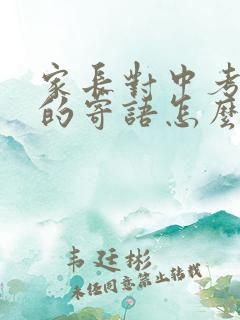 家長對中考
的寄語怎麼
韦廷彬
未任同意禁止转载